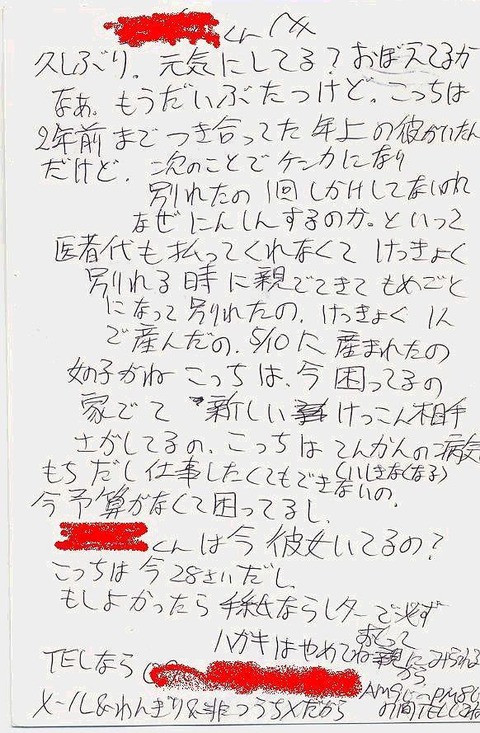 くんへ
久しぶり。元気にしてる?おぼえてるか
なぁ。もうだいぶたつけど。こっちは
2年前までつき合ってた年上の彼がいたん
だけど。次のことでケンカになり
別れたの1回しかけしてないのに
なぜにんしんするのか。といって
医者代も払ってくれなくてけっきょく
別れる時に親でてきてもめごと
になって別れたの。けっきょく1人
で産んだの。5/10に産まれたの
女の子がね こっちは、今困ってるの
家でて 新しい けっこん相手
さがしてるの。こっちはてんかんの病気
もちだし仕事したくてもできないの。
(いしきなくなる)
今予算がなくて困ってるし、
くんは今彼女いてるの?
こっちは今28さいだし
もしよかったら手紙ならレターで必ず
おくって
ハガキはやめてね親にみられる
から
TELなら(
AM9じ〜PM8じ
の間TELしてね
メール&わんぎり&非つうちXだから